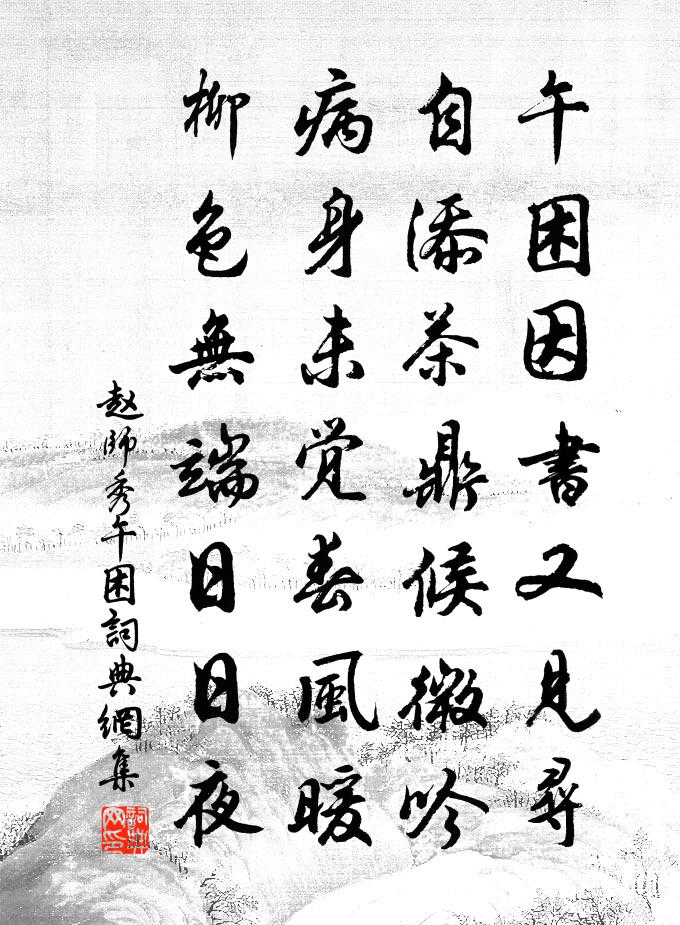 午困因書又见尋
自添茶鼎候微吟
病身未觉春風暖
柳色無端日日夜
赵師秀午困詞典網集
詞典网印